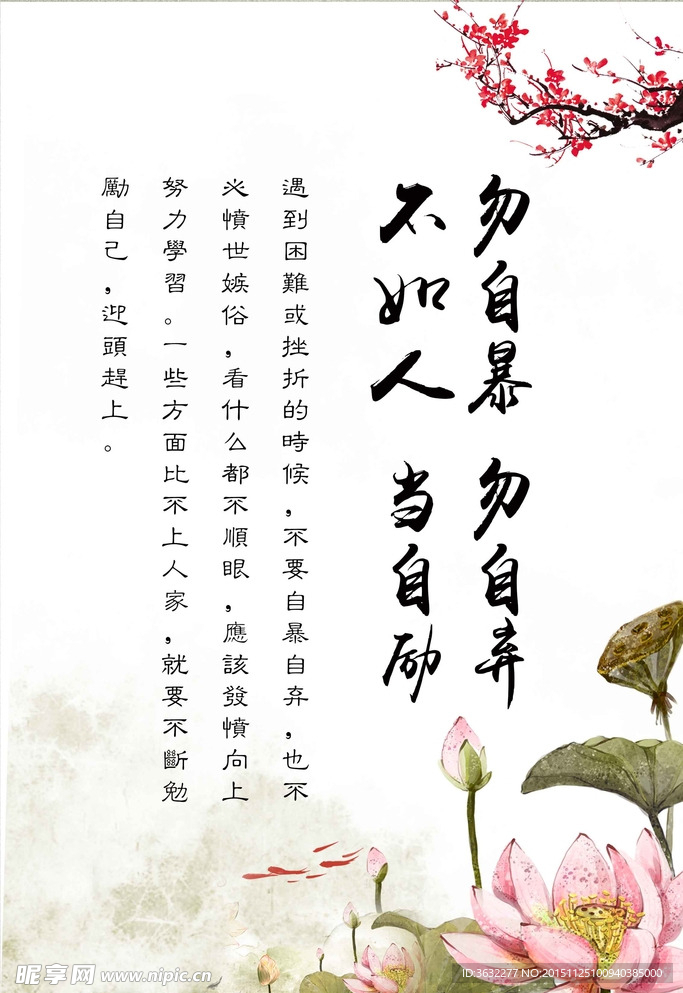 勿自暴 勿自弃
不如人 当自励
遇到困難或挫折的時候，不要自暴自弃，也不
必憤世嫉俗，看什么都不順眼，應該發憤向上
努力學習。一些方面比不上人家，就要不斷勉
勵自己，迎頭趕上。
昵享网 www.nipic.cn
ID:3632277 NO:20151125100940385000